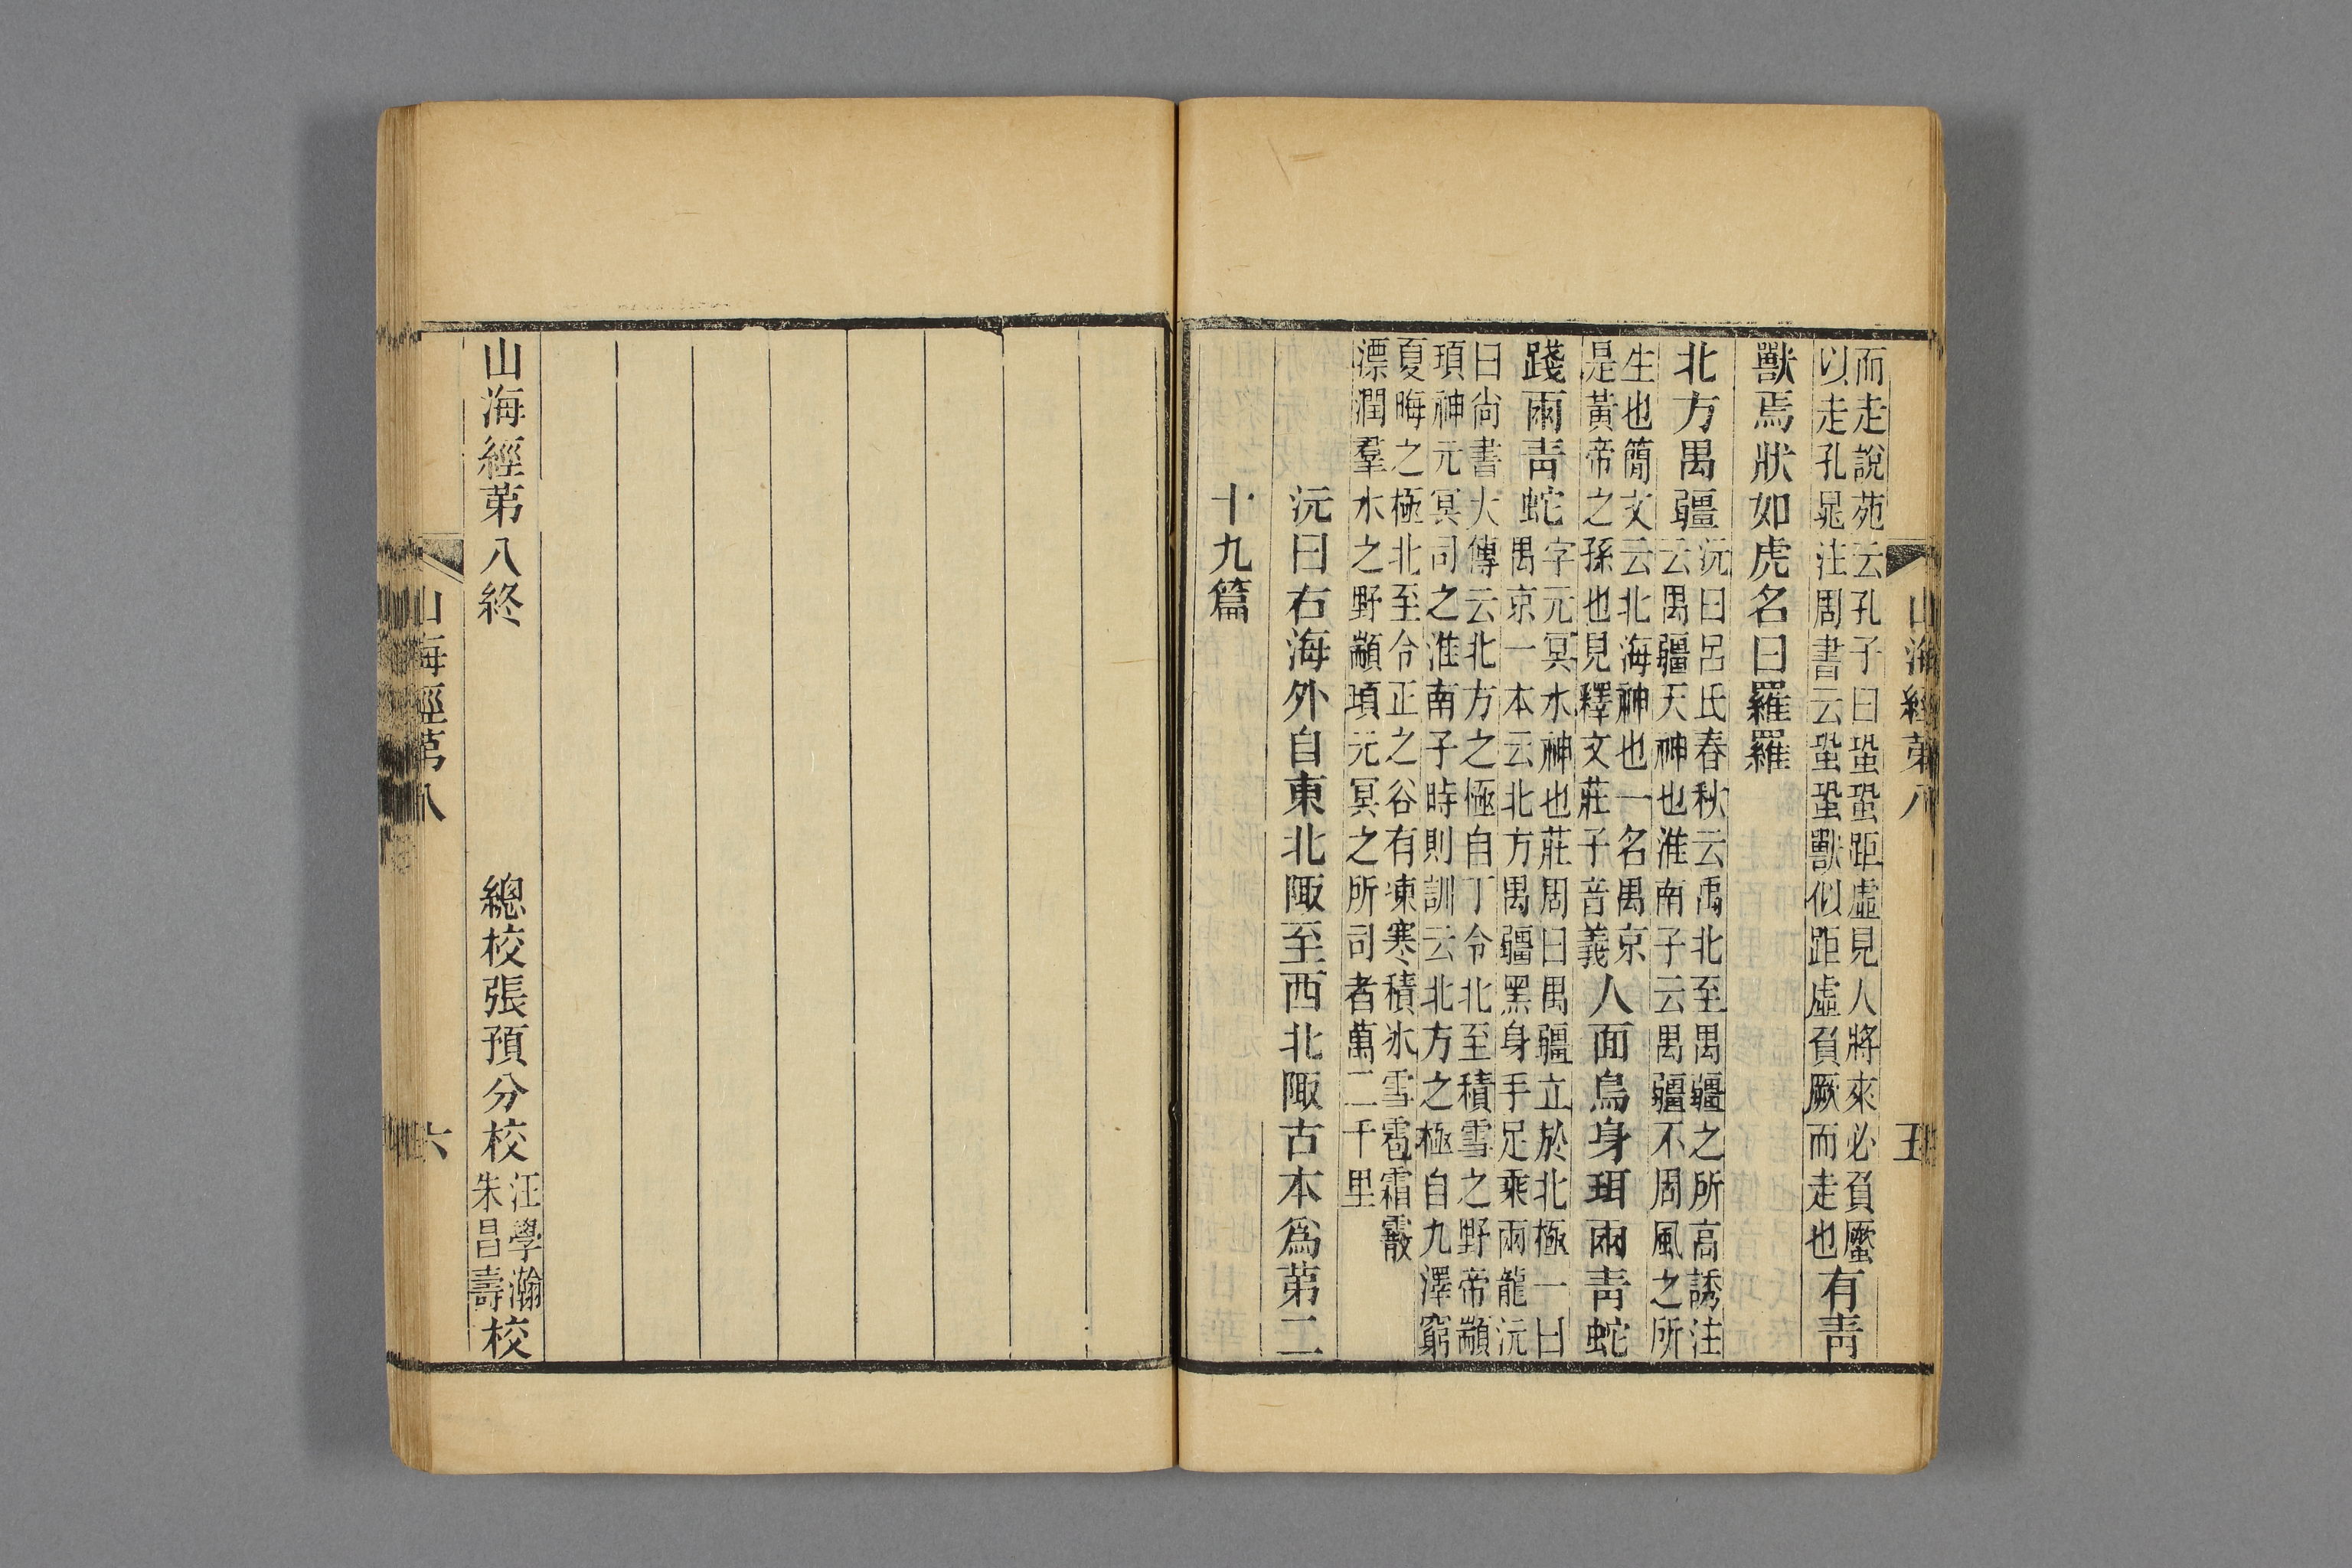 山海經第八
五
而走說苑云孔子曰蛩蛩距虛見人將來必負蟨
以走孔晁注周書云蛩蛩獸似距虛負厥而走也
有靑
獸焉狀如虎名曰羅羅
北方禺疆
沅曰呂氏春秋云禹北至禺疆之所高誘注
云禺疆天神也淮南子云禺疆不周風之所
生也簡文云北海神也一名禺京
是黃帝之孫也見釋文莊子音義
人面鳥身珥兩靑蛇
踐兩靑蛇
字元冥水神也莊周曰禺疆立於北極一曰
禺京一本云北方禺疆黑身手足乘兩龍沅
曰尙書大傳云北方之極自丁令北至積雪之野帝顓
頊神元冥司之淮南子時則訓云北方之極自九澤窮
夏晦之極北至令正之谷有凍寒積氷雪雹霜霰
漂潤羣水之野顓頊元冥之所司者萬二千里
沅曰右海外自東北陬至西北陬古本爲第二
十九篇
山海經第八終
總校張預分校
汪學瀚
朱昌壽
校
山海經第八
六